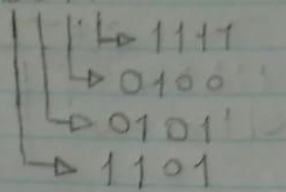 1111
0100
0101
1101